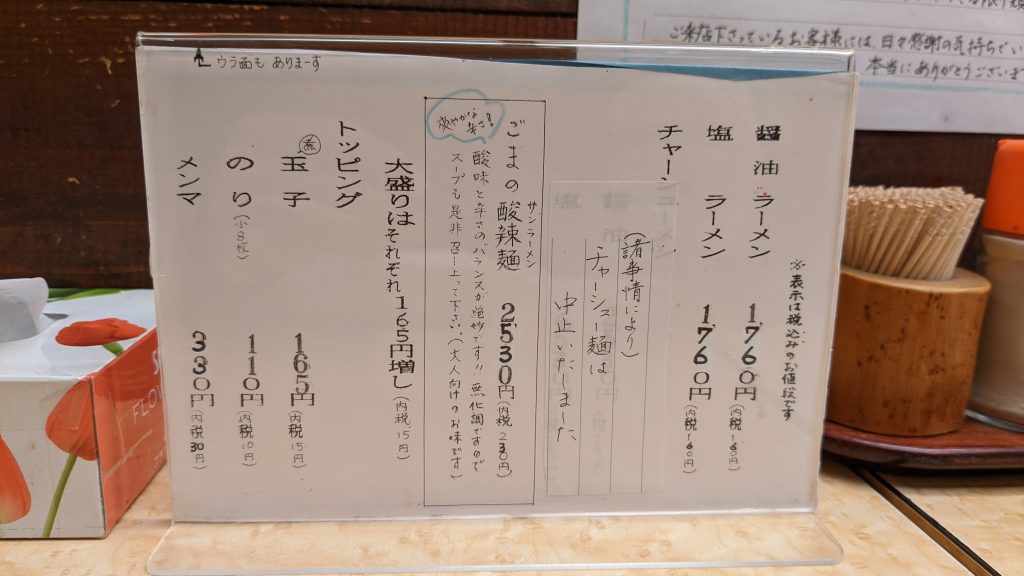 ウラ面も ありまーす
※表示は税込みのお値段です
醤油 ラーメン 1,760円 (内税160円)
塩 ラーメン 1,760円 (内税160円)
チャーシューメン
(諸事情により)
チャーシュー麺は
中止いたしました
爽やかな
辛さ!
サンラーメン
ごまの酸辣麺 2530円 (内税230円)
酸味と辛さのバランスが絶妙です!!無化調ですので
スープも是非召し上って下さい。(大人向けのお味です)
大盛りはそれぞれ165円増し (内税15円)
トッピング
煮玉子 165円 (内税15円)
のり (小8枚) 110円 (内税10円)
メンマ 330円 (内税30円)
ご来店下さっているお客様には、日々感謝の気持ちでい
本当にありがとうございま
FLOW